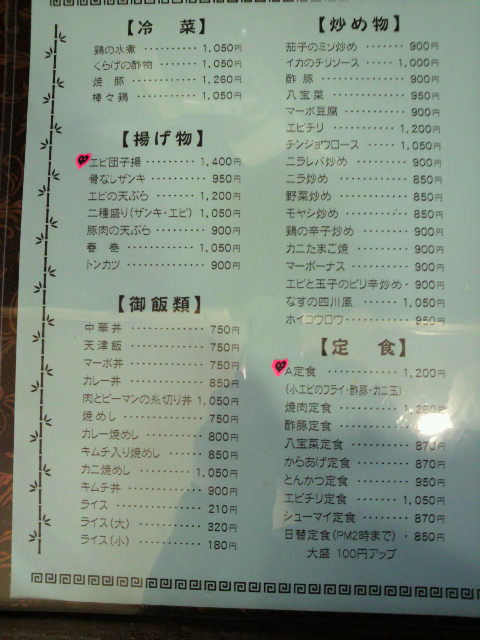 【冷　菜】
鶏の水煮 ･････････ 1,050円
くらげの酢物 ･････ 1,050円
焼　豚 ･･･････････ 1,260円
棒々鶏 ･･･････････ 1,050円
【揚げ物】
エビ団子揚 ･･･････ 1,400円
骨なしザンキ ･････ 950円
エビの天ぷら ･････ 1,200円
二種盛り(ザンキ・エビ) 1,050円
豚肉の天ぷら ･････ 900円
春　巻 ･･･････････ 1,050円
トンカツ ･････････ 900円
【御飯類】
中華丼 ･･･････････ 750円
天津飯 ･･･････････ 750円
マーボ丼 ･････････ 750円
カレー丼 ･････････ 850円
肉とピーマンの糸切り丼 1,050円
焼めし ･･･････････ 750円
カレー焼めし ･････ 800円
キムチ入り焼めし ･･･ 850円
カニ焼めし ･･･････ 1,050円
キムチ丼 ･････････ 900円
ライス ･･･････････ 210円
ライス(大) ･･･････ 320円
ライス(小) ･･･････ 180円
【炒め物】
茄子のミソ炒め ････ 900円
イカのチリソース ･･･ 1,000円
酢　豚 ･･･････････ 900円
八宝菜 ･･･････････ 950円
マーボ豆腐 ･･･････ 900円
エビチリ ･････････ 1,200円
チンジョウロース ･･･ 1,050円
ニラレバ炒め ･････ 900円
ニラ炒め ･････････ 850円
野菜炒め ･････････ 850円
モヤシ炒め ･･･････ 850円
鶏の辛子炒め ･････ 900円
カニたまご焼 ･････ 900円
マーボーナス ･････ 900円
エビと玉子のピリ辛炒め ･ 900円
なすの四川風 ･････ 1,050円
ホイコウロウ ･････ 950円
【定　食】
A定食 ･･･････････ 1,200円
(小エビのフライ・酢豚・カニ玉)
焼肉定食 ･････････ 1,260円
酢豚定食 ･････････
八宝菜定食 ･･･････ 870円
からあげ定食 ･････ 870円
とんかつ定食 ･････ 950円
エビチリ定食 ･････ 1,050円
シューマイ定食 ････ 870円
日替定食(PM2時まで) ･ 850円
大盛 100円アップ